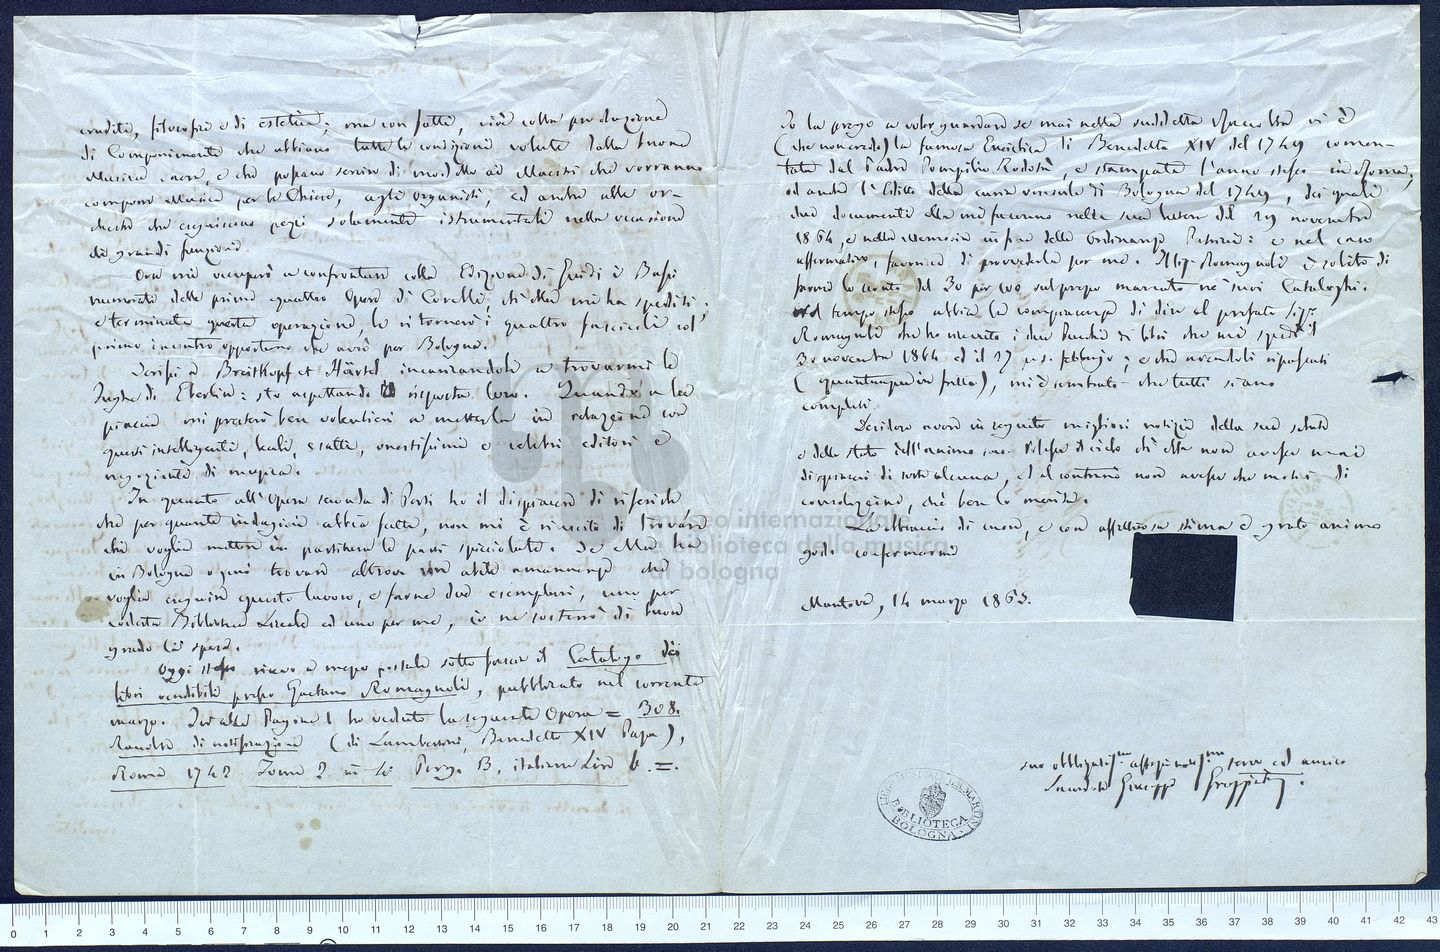 erudite, filosofiche e di estetica; ma con fatti, cioè colla produzione
di Componimenti che abbiano tutte le condizioni volute dalla buona
Musica sacra, e che possano servire di modello ai Maestri che vorranno
comporre Musica per le Chiese, agli organisti, ed anche alle or-
chestre che eseguiscono pezzi solamente istrumentali nelle occasioni
di grandi funzioni.
Ora mi occuperò a confrontare colla Edizione di Guidi i Bassi
numerati delle prime quattro Opere di Corelli, ch'Ella mi ha spediti;
e terminata questa operazione, le ritornerò i quattro fascicoli col
primo incontro opportuno che avrò per Bologna.
Scrissi a Breitkopf et Härtel incaricandoli a trovarmi le
Fughe di Eberlin: sto aspettando risposta loro. Quando a Lei
piaccia mi presterò ben volentieri a metterla in relazione con
questi intelligenti, leali, esatti, onestissimi e celebri editori e
negozianti di musica.
In quanto all'Opera seconda di Perti ho il dispiacere di riferirle
che per quante indagini abbia fatte, non mi è riuscito di trovare
chi voglia mettere in partitura le parti spicciolate. Se Ella ha
in Bologna o può trovare altrove un abile amanuense che
voglia eseguire questo lavoro, e farne due esemplari, uno per
codesta Biblioteca Liceale ed uno per me, io ne sosterrò di buon
grado la spesa.
Oggi stesso ricevo a mezzo postale sotto fascia il Catalogo dei
libri vendibili presso Gaetano Romagnoli, pubblicato nel corrente
marzo. Ivi alla Pagina 1 ho veduto la seguente Opera = 308.
Raccolta di notificazioni (di Lambertini, Benedetto XIV Papa),
Roma 1742 Tomi 2 in 4º Perg. B. italiane Lire 6. =.
Io la prego a voler guardare se mai nella suddetta Raccolta vi è
(che non credo) la famosa Enciclica di Benedetto XIV del 1749 commen-
tata dal Padre Pompilio Rodotà, e stampata l'anno stesso in Roma,
od anche l'Editto della curia vescovile di Bologna del 1749, dei quali
due documenti ella mi fa cenno nella sua lettera del 29 novembre
1864, e nella Memoria in fine delle Ordinanze : e nel caso
affermativo, favorisca di provvederla per me. Il Sig. Romagnoli è solito di
farmi lo sconto del 30 per 100 sul prezzo marcato ne' suoi Cataloghi.
Nel tempo stesso abbia la compiacenza di dire al prefato Sigr
Romagnoli che ho ricevuto i due Pacchi di libri che mi spedì il
30 novembre 1864 ed il 27 p.s. febbrajo; e che avendoli ripassati
(quantunque in fretta), mi è sembrato che tutti siano
completi.
Desidero avere in seguito migliori notizie della sua salute
e dello stato dell'animo suo. Volesse il cielo ch'ella non avesse mai
dispiaceri di sorte alcuna, ed al contrario non avesse che motivi di
consolazione, che ben lo merita.
La abbraccio di cuore, e con affettuosa stima e grato animo
godo confermarmi
Mantova, 14 marzo 1865.
suo obbligatissmo affezionatissmo servo ed amico
Sacerdote Giuseppe Greggiati.
museo internazionale
e biblioteca della musica
di bologna
BIBLIOTECA
BOLOGNA
0 1 2 3 4 5 6 7 8 9 10 11 12 13 14 15 16 17 18 19 20 21 22 23 24 25 26 27 28 29 30 31 32 33 34 35 36 37 38 39 40 41 42 43